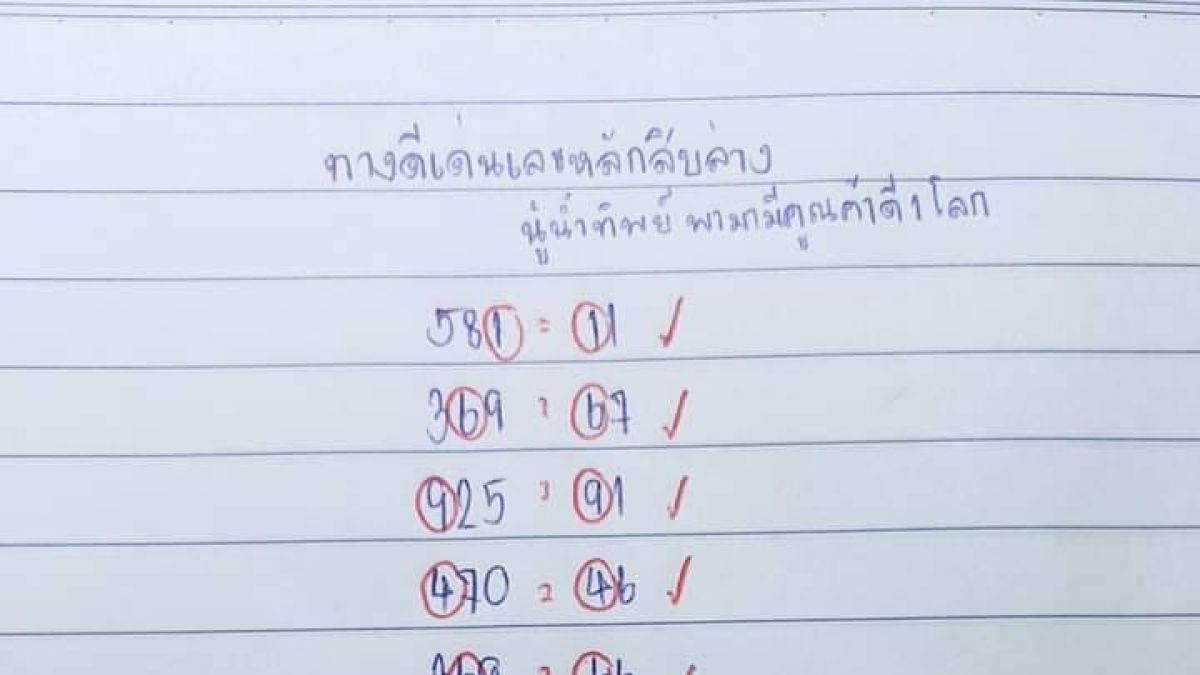 ทางดีเด่นเลขหลักสิบล่าง
นู๋น้ำทิพย์ พามามีคูณค้าดี1โลก
581 = 11 ✓
369 = 67 ✓
925 = 91 ✓
470 = 46 ✓